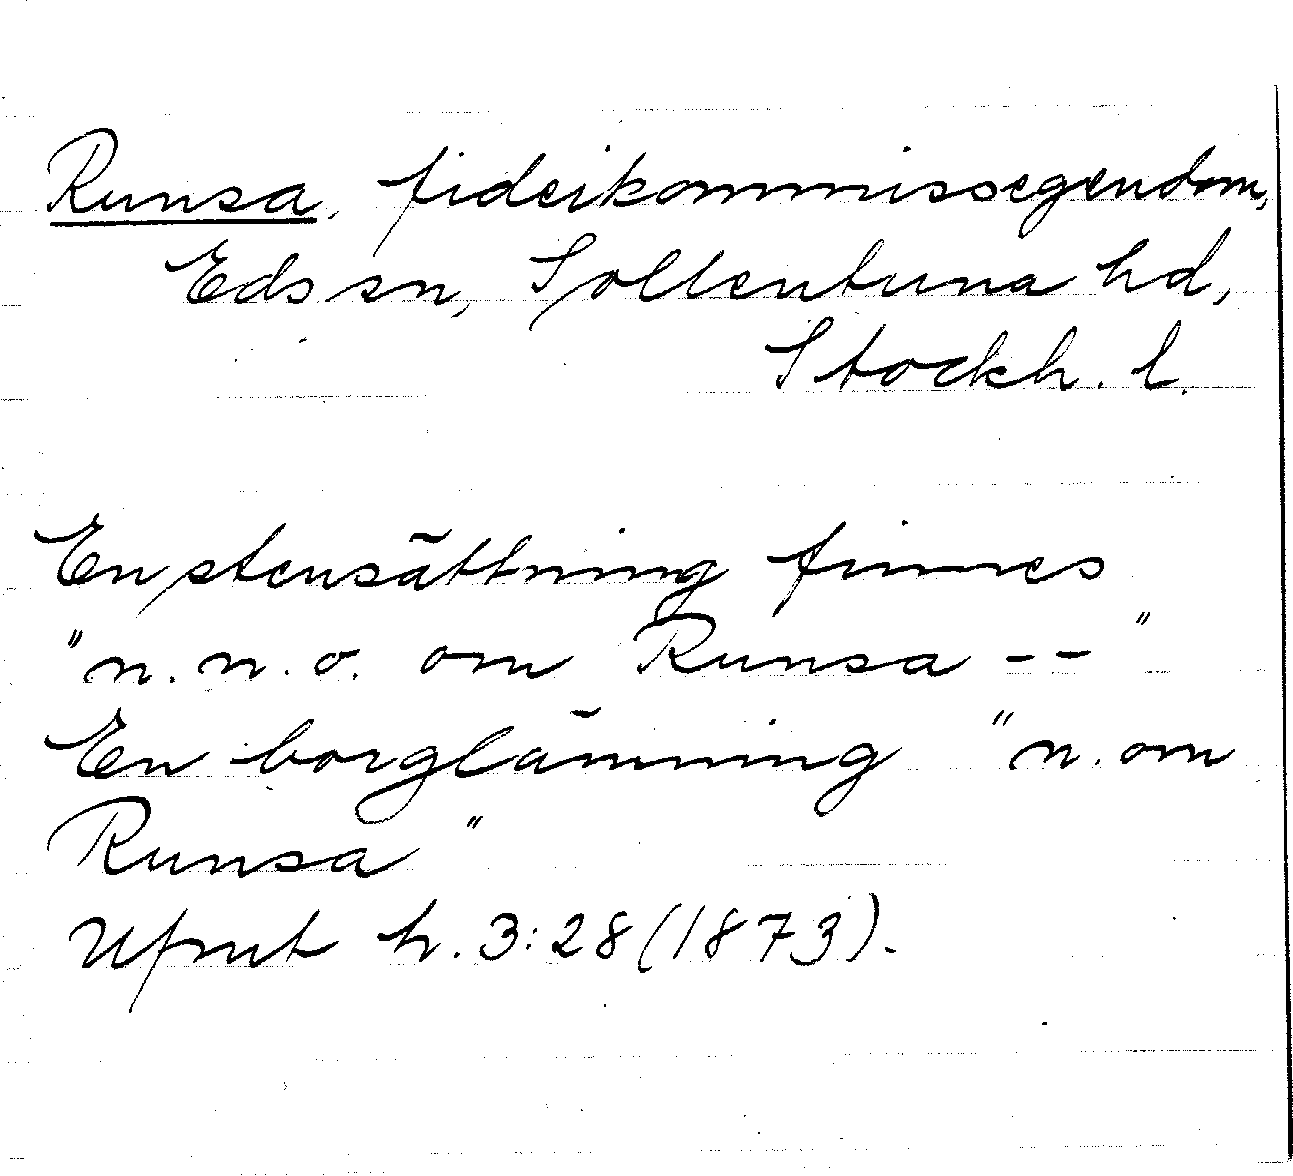 Runsa, fideikommissegendom,
Eds sn, Sollentuna hd,
Stockh. l.
En stensättning finnes
"n.n.o. om Runsa --"
En borglämning "n. om
Runsa"
Ufmt h. 3:28 (1873).